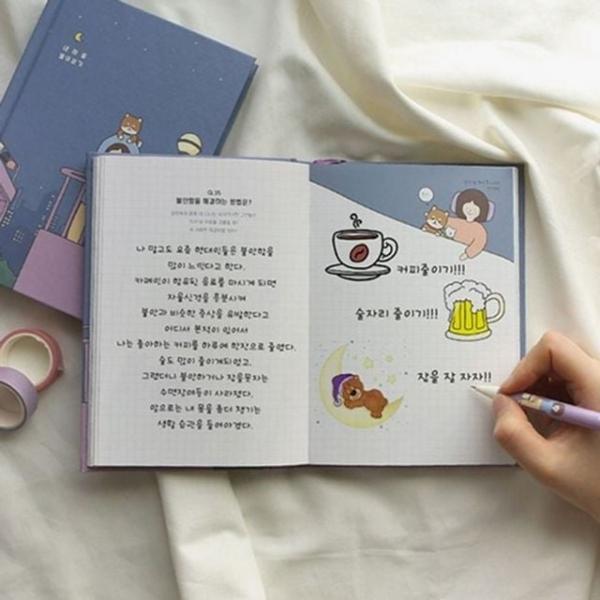 Q.35
불안함을 해결하는 방법은?
나 말고도 요즘 현대인들은 불안함을
많이 느낀다고 한다.
카페인이 함유된 음료를 마시게 되면
자율신경을 흥분시켜
불안과 비슷한 증상을 유발한다고
어디서 본적이 있어서
나는 좋아하는 커피를 하루에 한잔으로 줄였다.
술도 많이 줄이게되었고,
그랬더니 불안하거나 잠을못자는
수면장애들이 사라졌다.
앞으로는 내 몸을 좀더 챙기는
생활 습관을 들여야겠다.
커피줄이기!!!
술자리 줄이기!!!
잠을 잘 자자!!